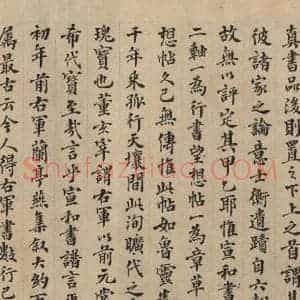 真書品後則置之下上之首譜
彼諸家之論意在衡遺蹟自六
故無以評定其甲乙耶惟宣和書
二軸一為行書望想帖一為章草
想帖久已無傳惟此帖如魯靈
千年乘行天壤間此洵曠代之
瑰寶也董玄宰謂右軍以前元常
希代寶至哉言宣和書譜言
初年前右軍蘭亭燕集敘大約百
屬最古云今人得右軍書數行已